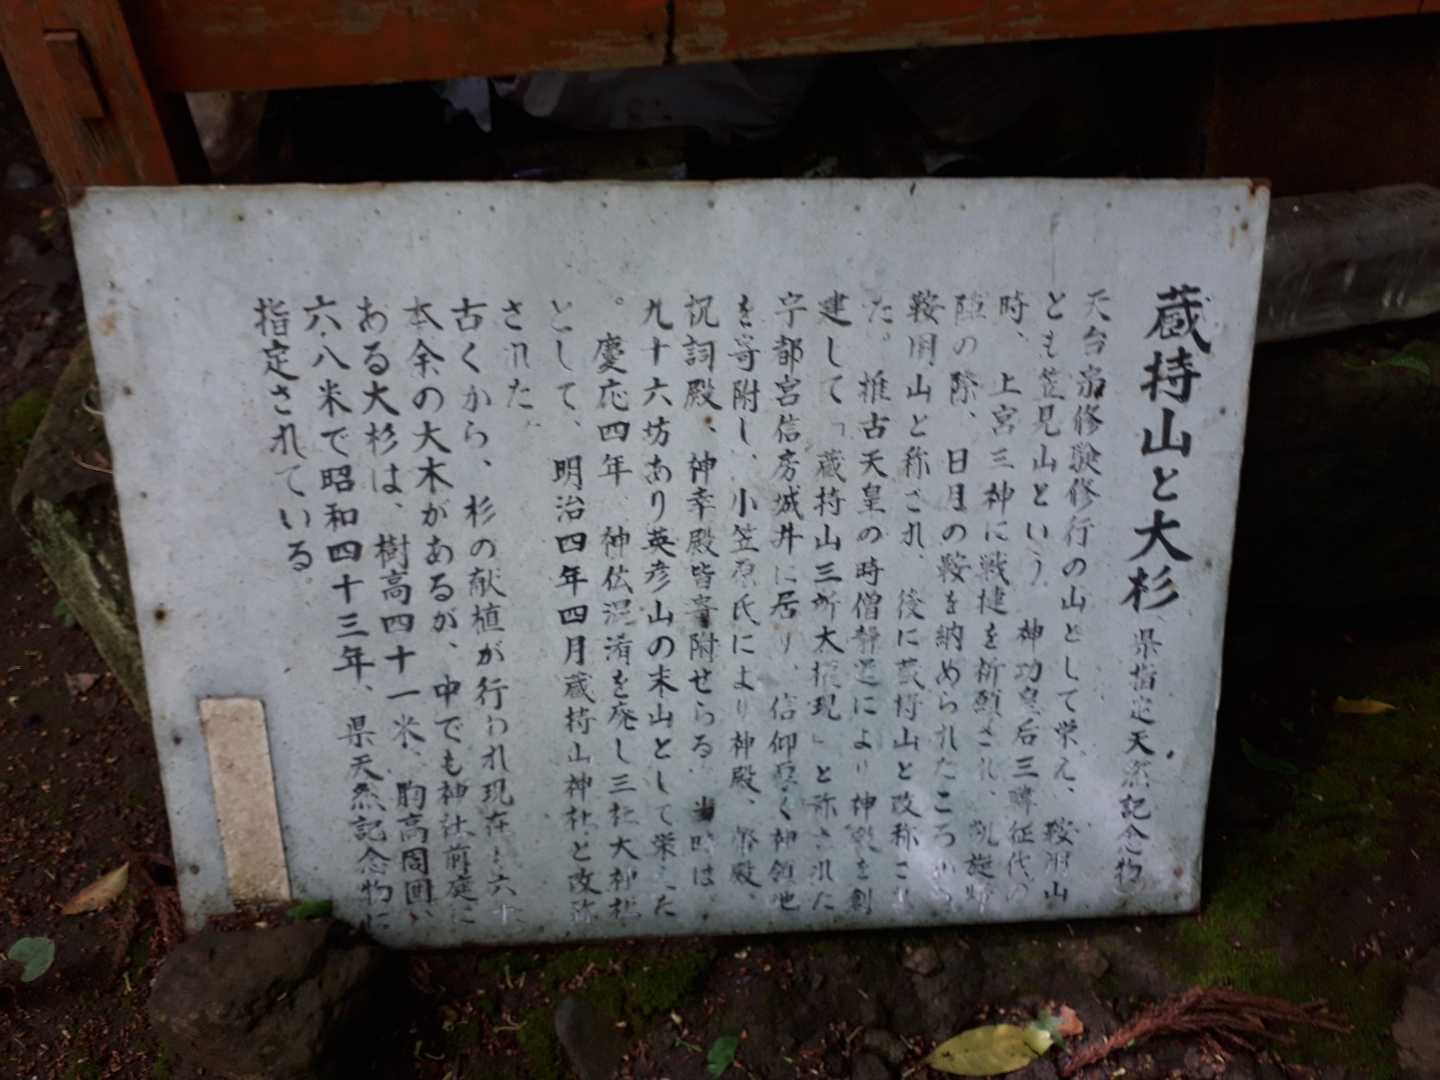 蔵持山と大杉 県指定天然記念物
天台宗修験修行の山として栄え、鞍用山
とも笠見山という 神功皇后三韓征代の
時、上宮三神に戦捷を祈願され、凱旋
陣の際、日月の鞍を納められたころから
鞍用山と称され、後に蔵持山と改称され
た。推古天皇の時僧静暹により神殿を創
建して「蔵持山三所大権現」と称された
宇都宮信房城井に居り、信仰厚く神領地
を寄附し、小笠原氏により神殿、幣殿、
祝詞殿、神幸殿皆寄附せらる 当時は、
九十六坊あり英彦山の末山として栄えた
。慶応四年 神仏混淆を廃し三社大神社
として、明治四年四月蔵持山神社と改称
された
古くから、杉の献植が行われ現在も六十
本余の大木があるが、中でも神社前庭に
ある大杉は、樹高四十一米、胸高周囲、
六.八米で昭和四十三年、県天然記念物に
指定されている。